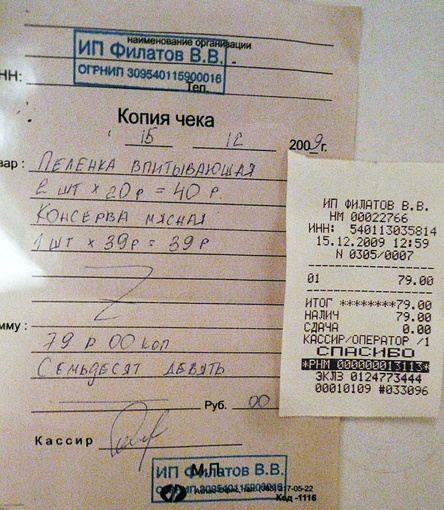 наименование организации
ИП Филатов В.В.
ОГРНИП 309540115900016
ИНН:
Тел.
Копия чека
15 12 2009г.
вар:
Пеленка впитывающая
2 шт х 20р = 40 р.
Консерва мясная
1 шт х 39р = 39 р
мму:
79 р 00 коп
Семьдесят девять
Руб. 00
Кассир
М.П.
ИП Филатов В.В.
ОГРНИП 309540115900016
Код -1116
ИП ФИЛАТОВ В.В.
НМ 00022766
ИНН: 540113035814
15.12.2009 12:59
N 0305/0007
01 79.00
ИТОГ ********79.00
НАЛИЧ 79.00
СДАЧА 0.00
КАССИР/ОПЕРАТОР /1
СПАСИБО
*РНМ 000000013113*
ЭКЛЗ 0124773444
00010109 #033096